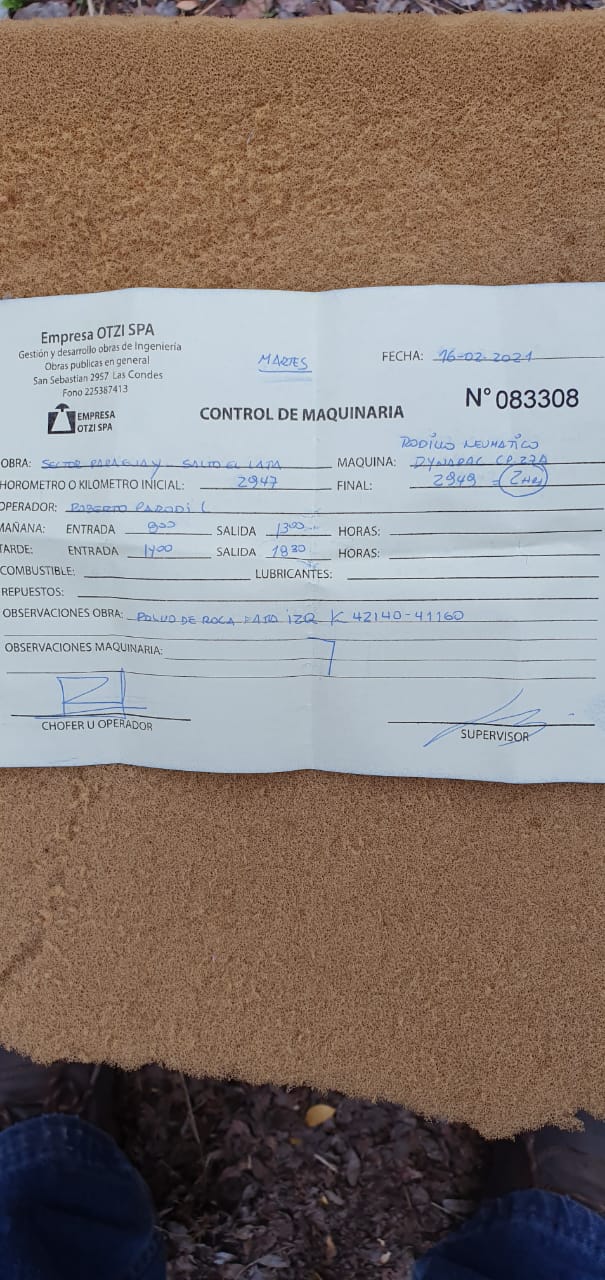 Empresa OTZI SPA
Gestión y desarrollo obras de Ingeniería
Obras publicas en general
San Sebastian 2957 Las Condes
Fono 225387413
EMPRESA
OTZI SPA
MARTES
FECHA: 16-02-2021
CONTROL DE MAQUINARIA
N° 083308
RODILLO NEUMATICO
OBRA: SECTOR PARAGUAY - SALTO EL LAJA MAQUINA: DYNAPAC CP.27A
HOROMETRO O KILOMETRO INICIAL: 2947 FINAL: 2949 = 2 HRS
OPERADOR: ROBERTO PARODI L
MAÑANA: ENTRADA 800 SALIDA 1300 HORAS:
TARDE: ENTRADA 1400 SALIDA 1830 HORAS:
COMBUSTIBLE: LUBRICANTES:
REPUESTOS:
OBSERVACIONES OBRA: POLVO DE ROCA IZQ K 42140-41160
OBSERVACIONES MAQUINARIA:
CHOFER U OPERADOR
SUPERVISOR